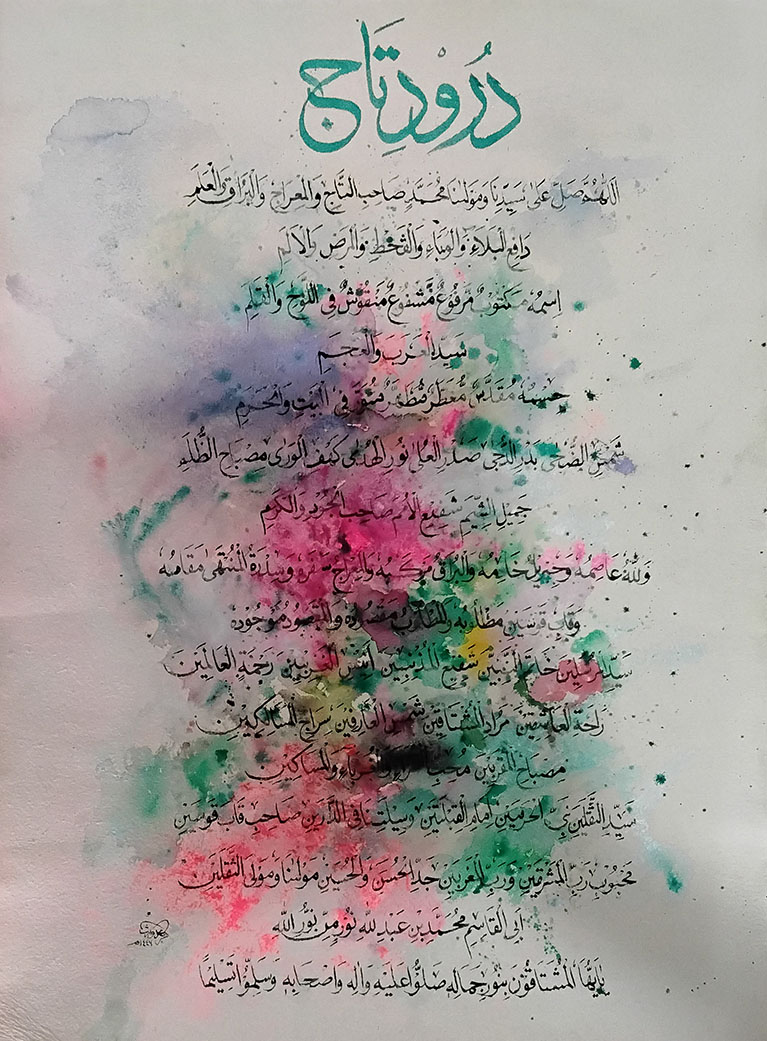 دُرُوْدِ تَاج
اَللّٰهُمَّ صَلِّ عَلٰى سَيِّدِنَا وَمَوْلٰىنَا مُحَمَّدٍ صَاحِبِ التَّاجِ وَالْمِعْرَاجِ وَالْبُرَاقِ وَالْعَلَمِ
دَافِعِ الْبَلَاءِ وَالْوَبَاءِ وَالْقَحْطِ وَالْمَرَضِ وَالْاَلَمِ
اِسْمُهٗ مَكْتُوْبٌ مَّرْفُوْعٌ مَّشْفُوْعٌ مَنْقُوْشٌ فِى اللَّوْحِ وَالْقَلَمِ
سَيِّدِ الْعَرَبِ وَالْعَجَمِ
جِسْمُهٗ مُقَدَّسٌ مُّعَطَّرٌ مُّطَهَّرٌ مُّنَوَّرٌ فِى الْبَيْتِ وَالْحَرَمِ
شَمْسِ الضُّحٰى بَدْرِ الدُّجٰى صَدْرِ الْعُلٰى نُوْرِ الْهُدٰى كَهْفِ الْوَرٰى مِصْبَاحِ الظُّلَمِ
جَمِيْلِ الشِّيَمِ شَفِيْعِ الْاُمَمِ صَاحِبِ الْجُوْدِ وَالْكَرَمِ
وَاللّٰهُ عَاصِمُهٗ وَجِبْرِيْلُ خَادِمُهٗ وَالْبُرَاقُ مَرْكَبُهٗ وَالْمِعْرَاجُ سَفَرُهٗ وَسِدْرَةُ الْمُنْتَهٰى مَقَامُهٗ
وَقَابَ قَوْسَيْنِ مَطْلُوْبُهٗ وَالْمَطْلُوْبُ مَقْصُوْدُهٗ وَالْمَقْصُوْدُ مَوْجُوْدُهٗ
سَيِّدِ الْمُرْسَلِيْنَ خَاتَمِ النَّبِيِّيْنَ شَفِيْعِ الْمُذْنِبِيْنَ اَنِيْسِ الْغَرِيْبِيْنَ رَحْمَةِ الْعَالَمِيْنَ
رَاحَةِ الْعَاشِقِيْنَ مُرَادِ الْمُشْتَاقِيْنَ شَمْسِ الْعَارِفِيْنَ سِرَاجِ السَّالِكِيْنَ
مِصْبَاحِ الْمُقَرَّبِيْنَ مُحِبِّ وَالْغُرَبَاءِ وَالْمَسَاكِيْنَ
سَيِّدِ الثَّقَلَيْنِ نَبِيِّ الْحَرَمَيْنِ اِمَامِ الْقِبْلَتَيْنِ وَسِيْلَتِنَا فِى الدَّارَيْنِ صَاحِبِ قَابَ قَوْسَيْنِ
مَحْبُوْبِ رَبِّ الْمَشْرِقَيْنِ وَرَبِّ الْمَغْرِبَيْنِ جَدِّ الْحَسَنِ وَالْحُسَيْنِ مَوْلٰىنَا وَمَوْلَى الثَّقَلَيْنِ
اَبِى الْقَاسِمِ مُحَمَّدِ بْنِ عَبْدِ اللّٰهِ نُوْرٍ مِّنْ نُّوْرِ اللّٰهِ
يٰاَيُّهَا الْمُشْتَاقُوْنَ بِنُوْرِ جَمَالِهٖ صَلُّوْا عَلَيْهِ وَاٰلِهٖ وَاَصْحَابِهٖ وَسَلِّمُوْا تَسْلِيْمًا
١٤٤٦